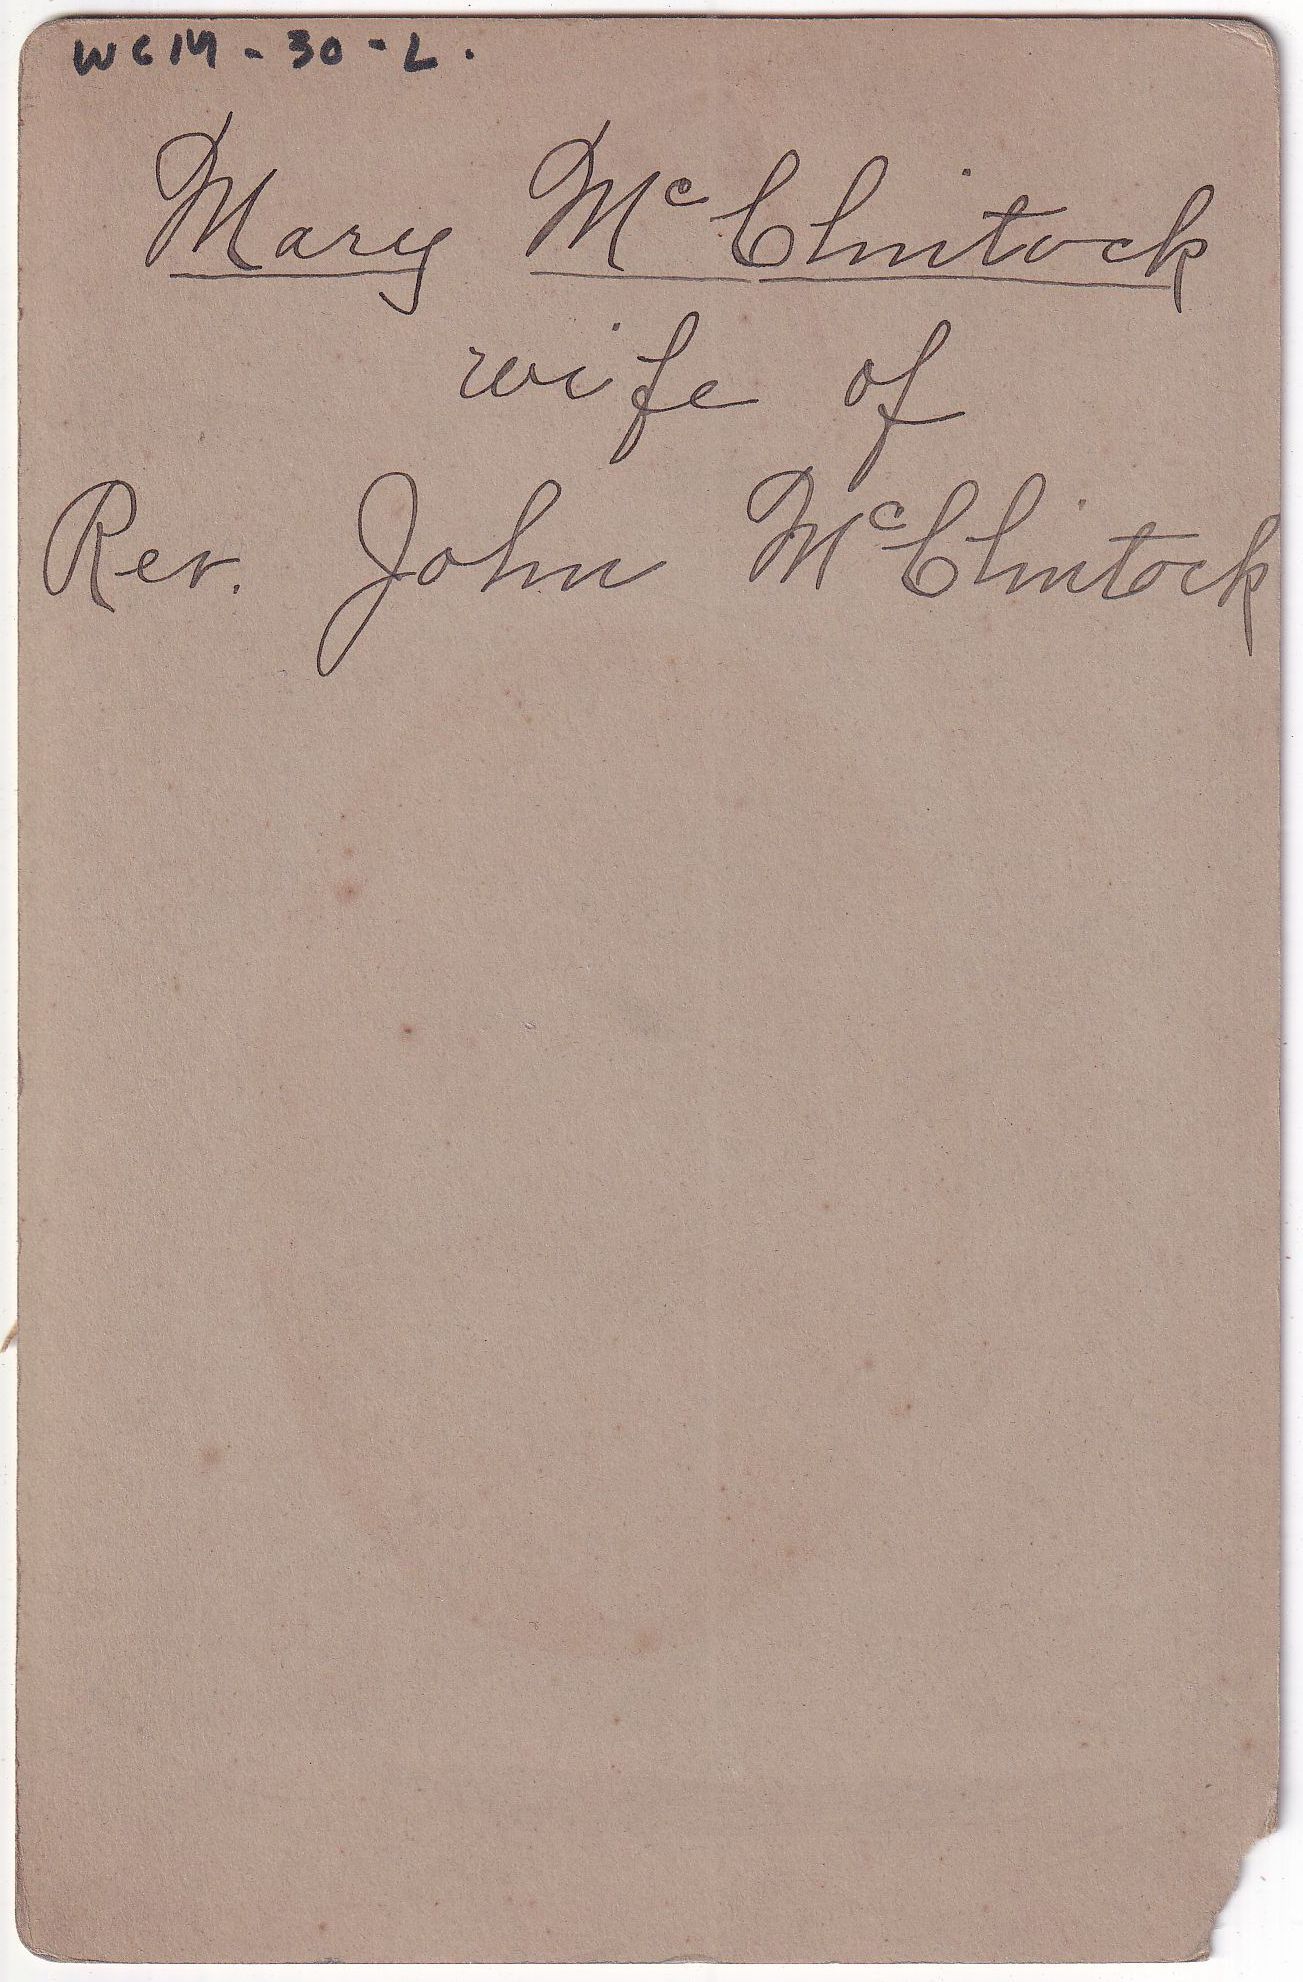 WCM - 30 - L.
Mary McClintock
wife of
Rev. John McClintock